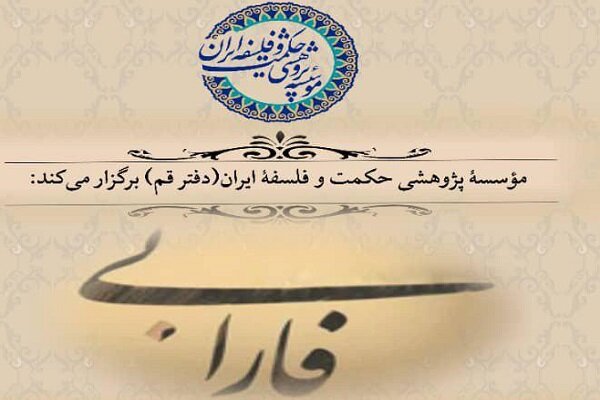 مؤسسه پژوهشی حکمت و فلسفه ایران
مؤسسهٔ پژوهشی حکمت و فلسفهٔ ایران(دفتر قم) برگزار می‌کند:
فارابی